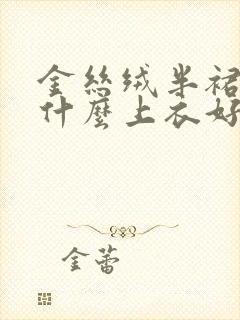 金絲絨半裙
什麼上衣好
金蕾